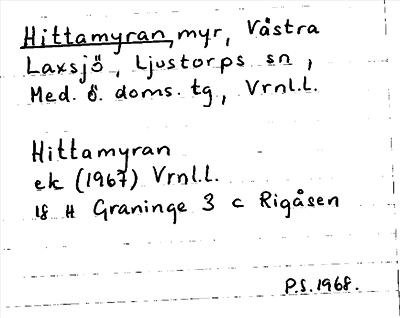 Hittamyran, myr, Västra
Laxsjö, Ljustorps sn,
Med. ö. doms. tg, Vrnl.L.
Hittamyran
ek (1967) Vrnl.L.
18 H Graninge 3 c Rigåsen
P.S. 1968.